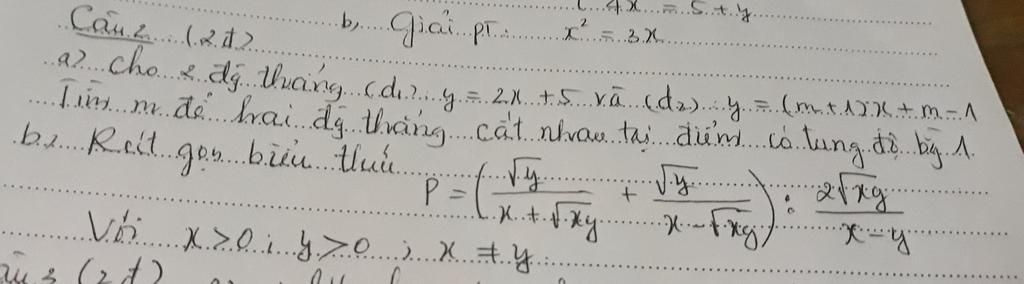 4x = 5 + y
b, Giải pt: x² = 3x
Câu 2: (2đ)
a) Cho 2 đg thẳng (d₁): y = 2x + 5 và (d₂): y = (m + 1)x + m - 1
Tìm m để hai đg thẳng cắt nhau tại điểm có tung độ bg 1.
b, Rút gọn biểu thức
P = (√y / (x + √xy) + √y / (x - √xy)) : 2√xy / (x - y)
Với x > 0 ; y > 0 ; x ≠ y.
(2đ)